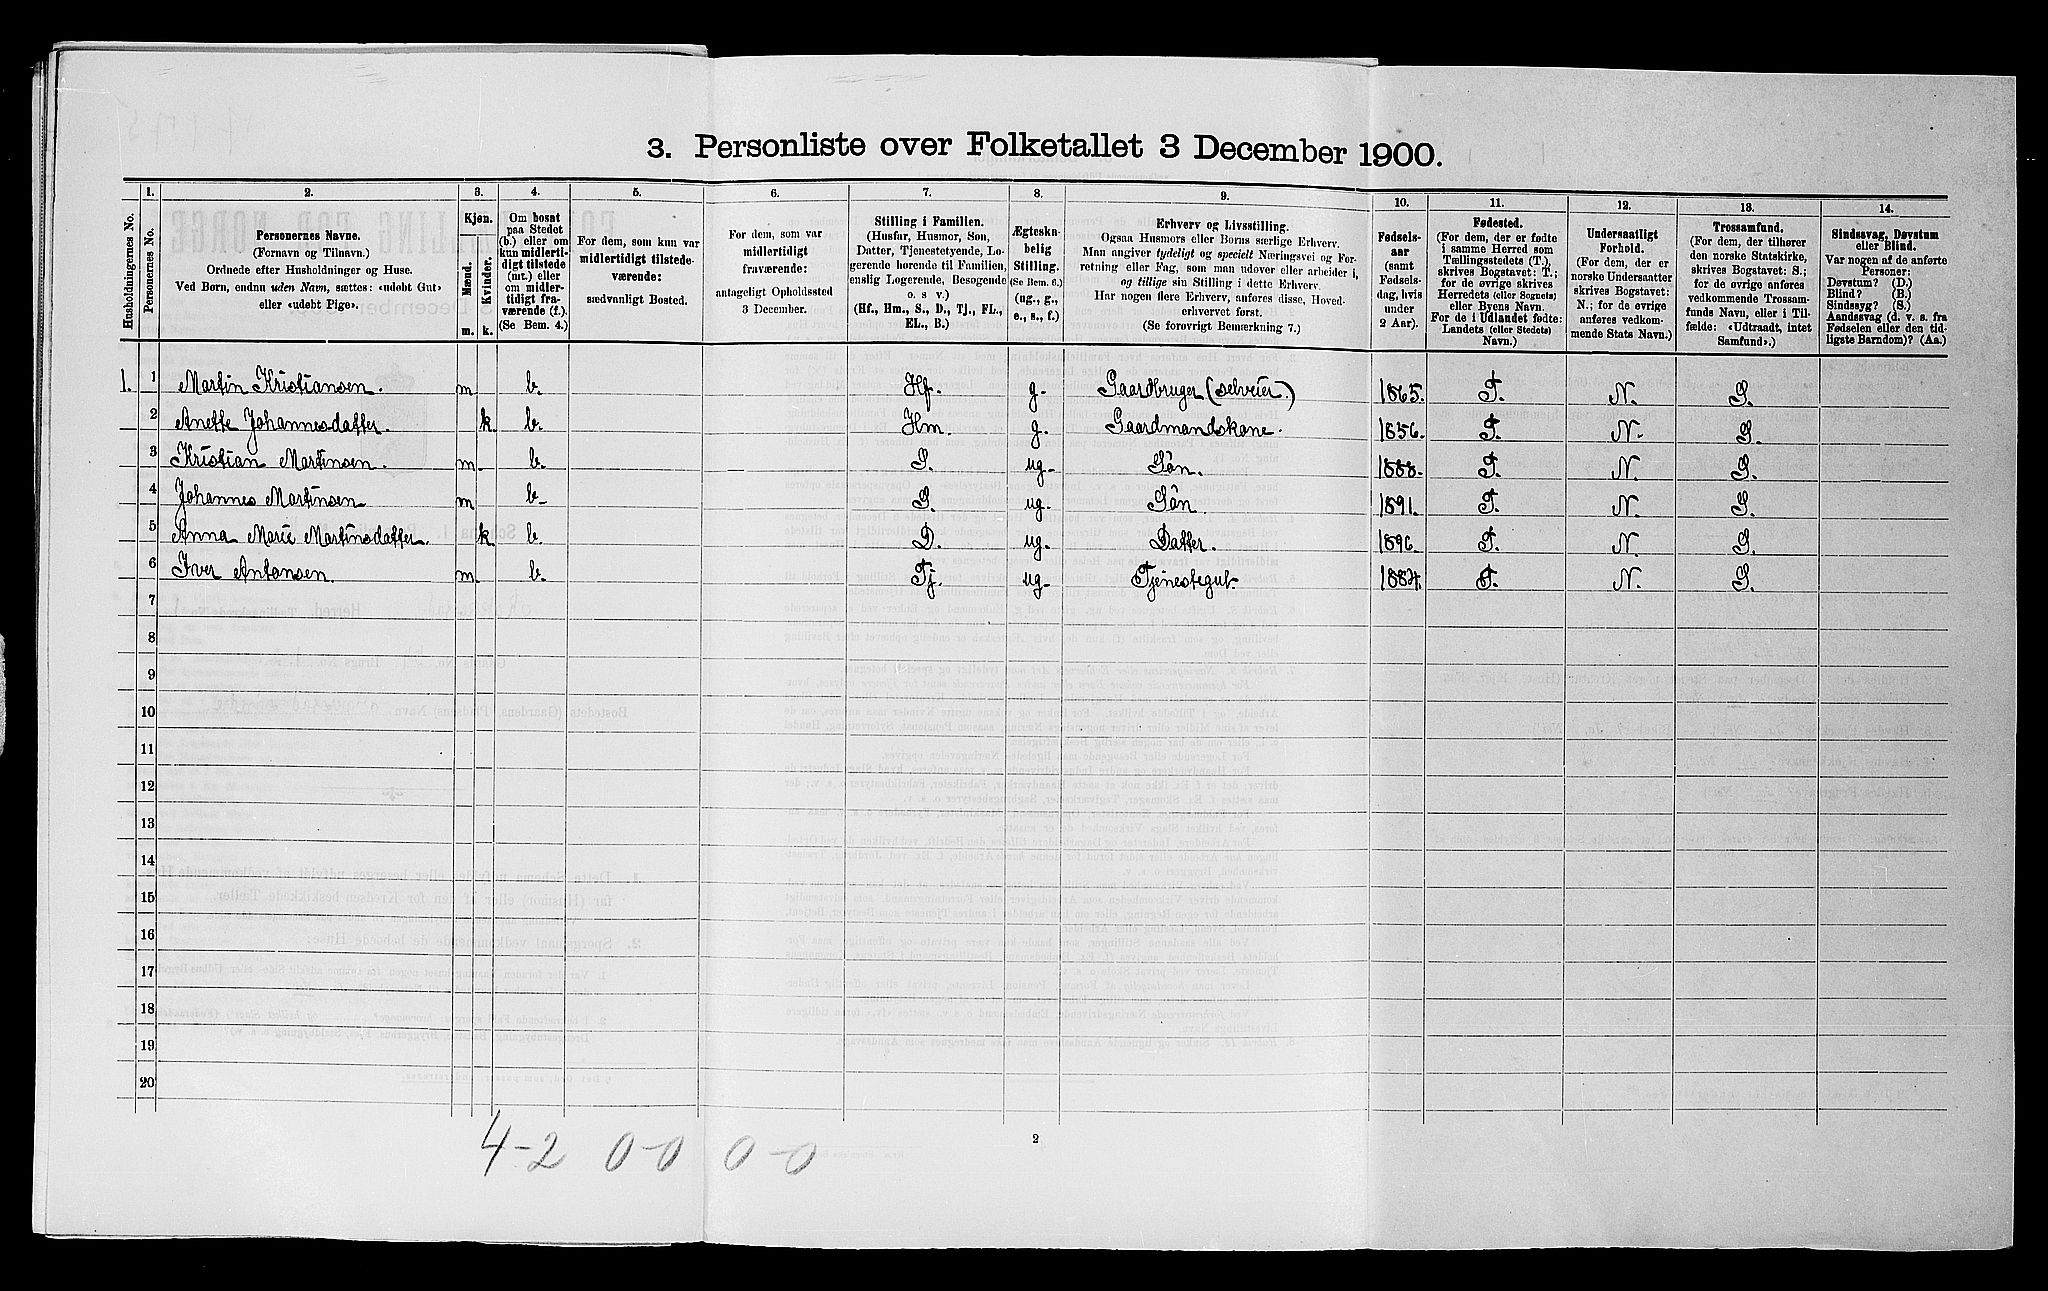 3. Personliste over Folketallet 3 December 1900.
Husholdningernes No.
1. Personernes No.
2. Personernes Navne.
(Fornavn og Tilnavn.)
Ordnede efter Husholdninger og Huse.
Ved Børn, endnu uden Navn, sættes: «udøbt Gut»
eller «udøbt Pige».
3. Kjøn.
Mænd. Kvinder.
m. k.
4. Om bosat
paa Stedet
(b.) eller om
kun midlerti-
digt tilstede
(mt.) eller
om midler-
tidigt fra-
værende (f.).
(Se Bem. 4.)
5. For dem, som kun var
midlertidigt tilstede-
værende:
sædvanligt Bosted.
6. For dem, som var
midlertidigt
fraværende:
antageligt Opholdssted
3 December.
7. Stilling i Familien.
(Husfar, Husmor, Søn,
Datter, Tjenestetyende, Lo-
gerende hørende til Familien,
enslig Logerende, Besøgende
o. s. v.)
(Hf., Hm., S., D., Tj., FL.,
EL., B.)
8. Ægteska-
belig
Stilling.
(Se Bem. 6.)
(ug., g.,
e., s., f.)
9. Erhverv og Livsstilling.
Ogsaa Husmors eller Børns særlige Erhverv.
Man angiver tydeligt og specielt Næringsvei og For-
retning eller Fag, som man udøver eller arbeider i,
og tillige sin Stilling i dette Erhverv.
Har nogen flere Erhverv, anføres disse, Hoved-
erhvervet først.
(Se forøvrigt Bemærkning 7.)
10. Fødsels-
aar
(samt
Fødsels-
dag, hvis
under
2 Aar).
11. Fødested.
(For dem, der er fødte
i samme Herred som
Tællingsstedets (T.),
skrives Bogstavet: T.;
for de øvrige skrives
Herredets (eller Sognets)
eller Byens Navn.
For de i Udlandet fødte:
Landets (eller Stedets)
Navn.)
12. Undersaatligt
Forhold.
(For dem, der er
norske Undersaatter
skrives Bogstavet:
N.; for de øvrige
anføres vedkom-
mende Stats Navn.)
13. Trossamfund.
(For dem, der tilhører
den norske Statskirke,
skrives Bogstavet: S.;
for de øvrige anføres
vedkommende Trossam-
funds Navn, eller i Til-
fælde: «Udtraadt, intet
Samfund».)
14. Sindssvag, Døvstum
eller Blind.
Var nogen af de anførte
Personer:
Døvstum? (D.)
Blind? (B.)
Sindssyg? (S.)
Aandssvag (d. v. s. fra
Fødselen eller den tid-
ligste Barndom)? (Aa.)
1. 1 Martin Kristiansen. m b. Hf. g. Gaardbruger (selveier.) 1865. T. N. S.
2 Anette Johannesdatter. k. b. Hm. g. Gaardmandskone. 1856. T. N. S.
3 Kristian Martinsen. m b. S. ug. Sön. 1888. T. N. S.
4 Johannes Martinsen m b S. ug. Sön. 1891. T. N. S.
5 Anna Marie Martinsdatter. k b. D. ug. Datter. 1896. T. N. S.
6 Iver Antonsen. m. b. Tj. ug. Tjenestegut. 1884. T. N. S.
7
8
9
10
11
12
13
14
15
16
17
18
19
20
4-2 0-0 0-0
2